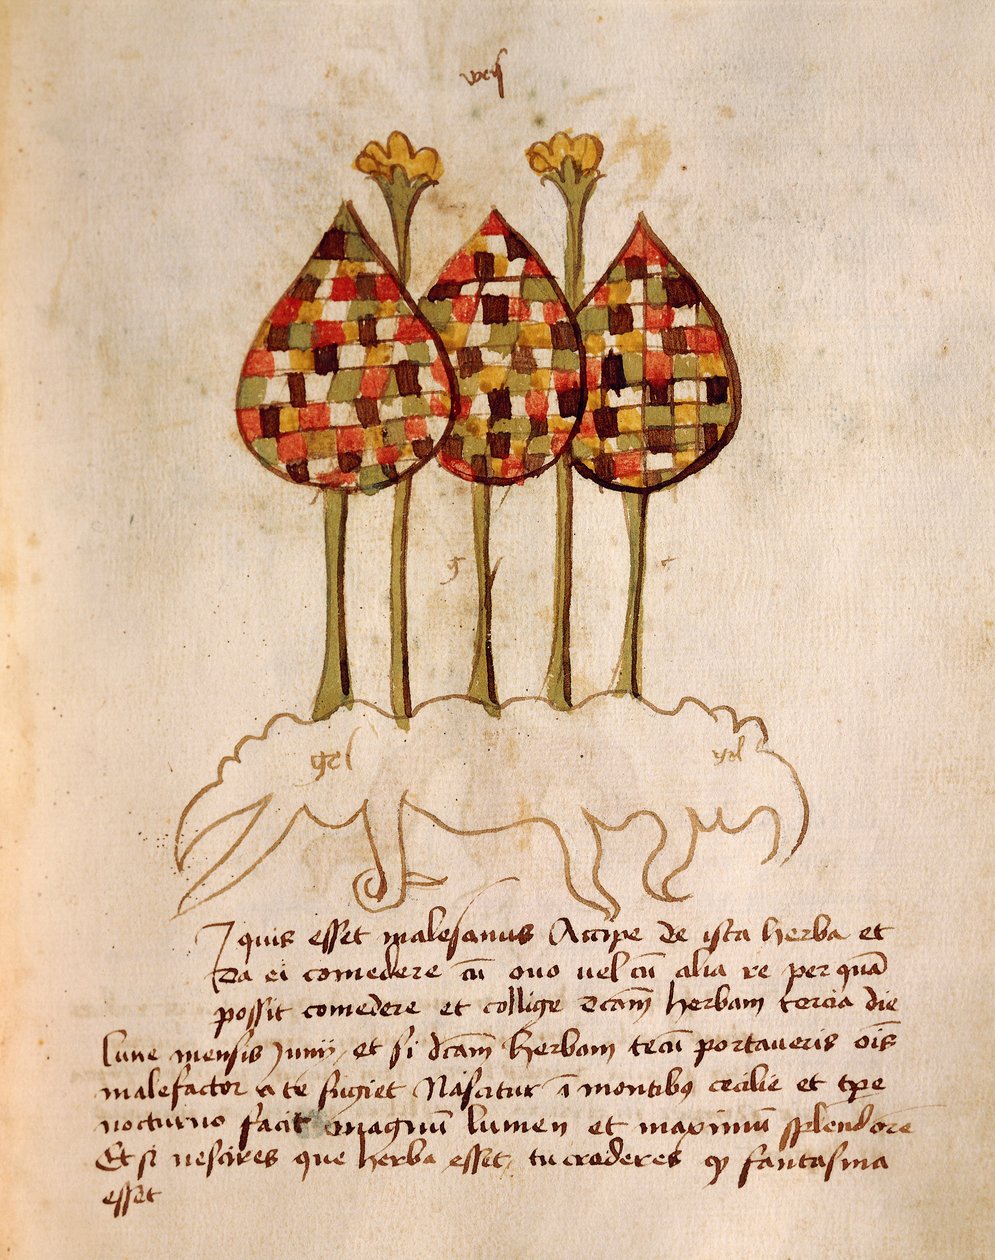 gel gel
Iquis esset malesanus Accipe de ista herba et
da ei comedere cū ouo uel cū alia re per quā
possit comedere et collige dcam̄ herbam tercia die
lune mensis Junij et si dcam̄ herbam tecū portaueris oīs
malefactor a te fugiet Nascitur ī montibꝰ cecilie et tp̄e
nocturno facit magnuī lumen et maximū splendore
Et si nescires que herba esset tu crederes ꝙ fantasma
esset